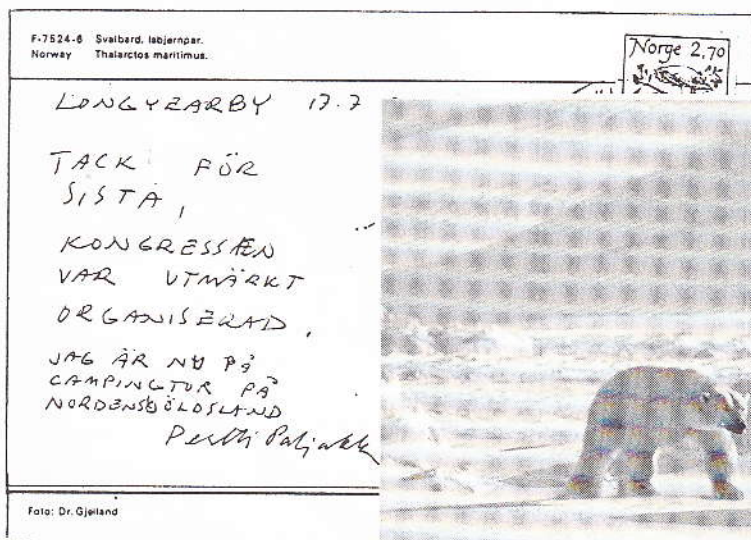 F-7524-6 Svalbard, Isbjørnpar.
Norway Thalarctos maritimus.
Norge 2,70
LONGYEARBY 17.7
TACK FÖR
SISTA,
KONGRESSÆN
VAR UTMÄRKT
ORGANISERAD.
JAG ÄR NU PÅ
CAMPINGTUR PÅ
NORDENSKJÖLDSLAND
Pertti
Foto: Dr. Gjelland